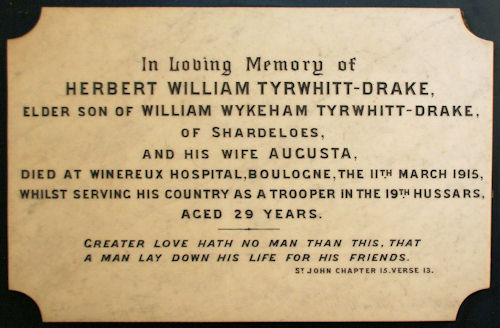 In Loving Memory of
HERBERT WILLIAM TYRWHITT-DRAKE,
ELDER SON OF WILLIAM WYKEHAM TYRWHITT-DRAKE,
OF SHARDELOES,
AND HIS WIFE AUGUSTA,
DIED AT WINEREUX HOSPITAL, BOULOGNE, THE 11TH MARCH 1915,
WHILST SERVING HIS COUNTRY AS A TROOPER IN THE 19TH HUSSARS,
AGED 29 YEARS.
GREATER LOVE HATH NO MAN THAN THIS, THAT
A MAN LAY DOWN HIS LIFE FOR HIS FRIENDS.
ST JOHN CHAPTER 15. VERSE 13.